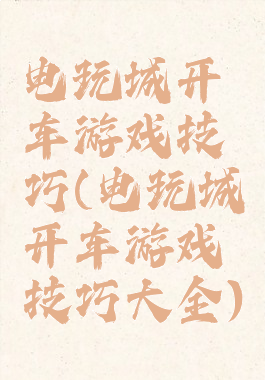 电玩城开
车游戏技
巧(电玩城
开车游戏
技巧大全)